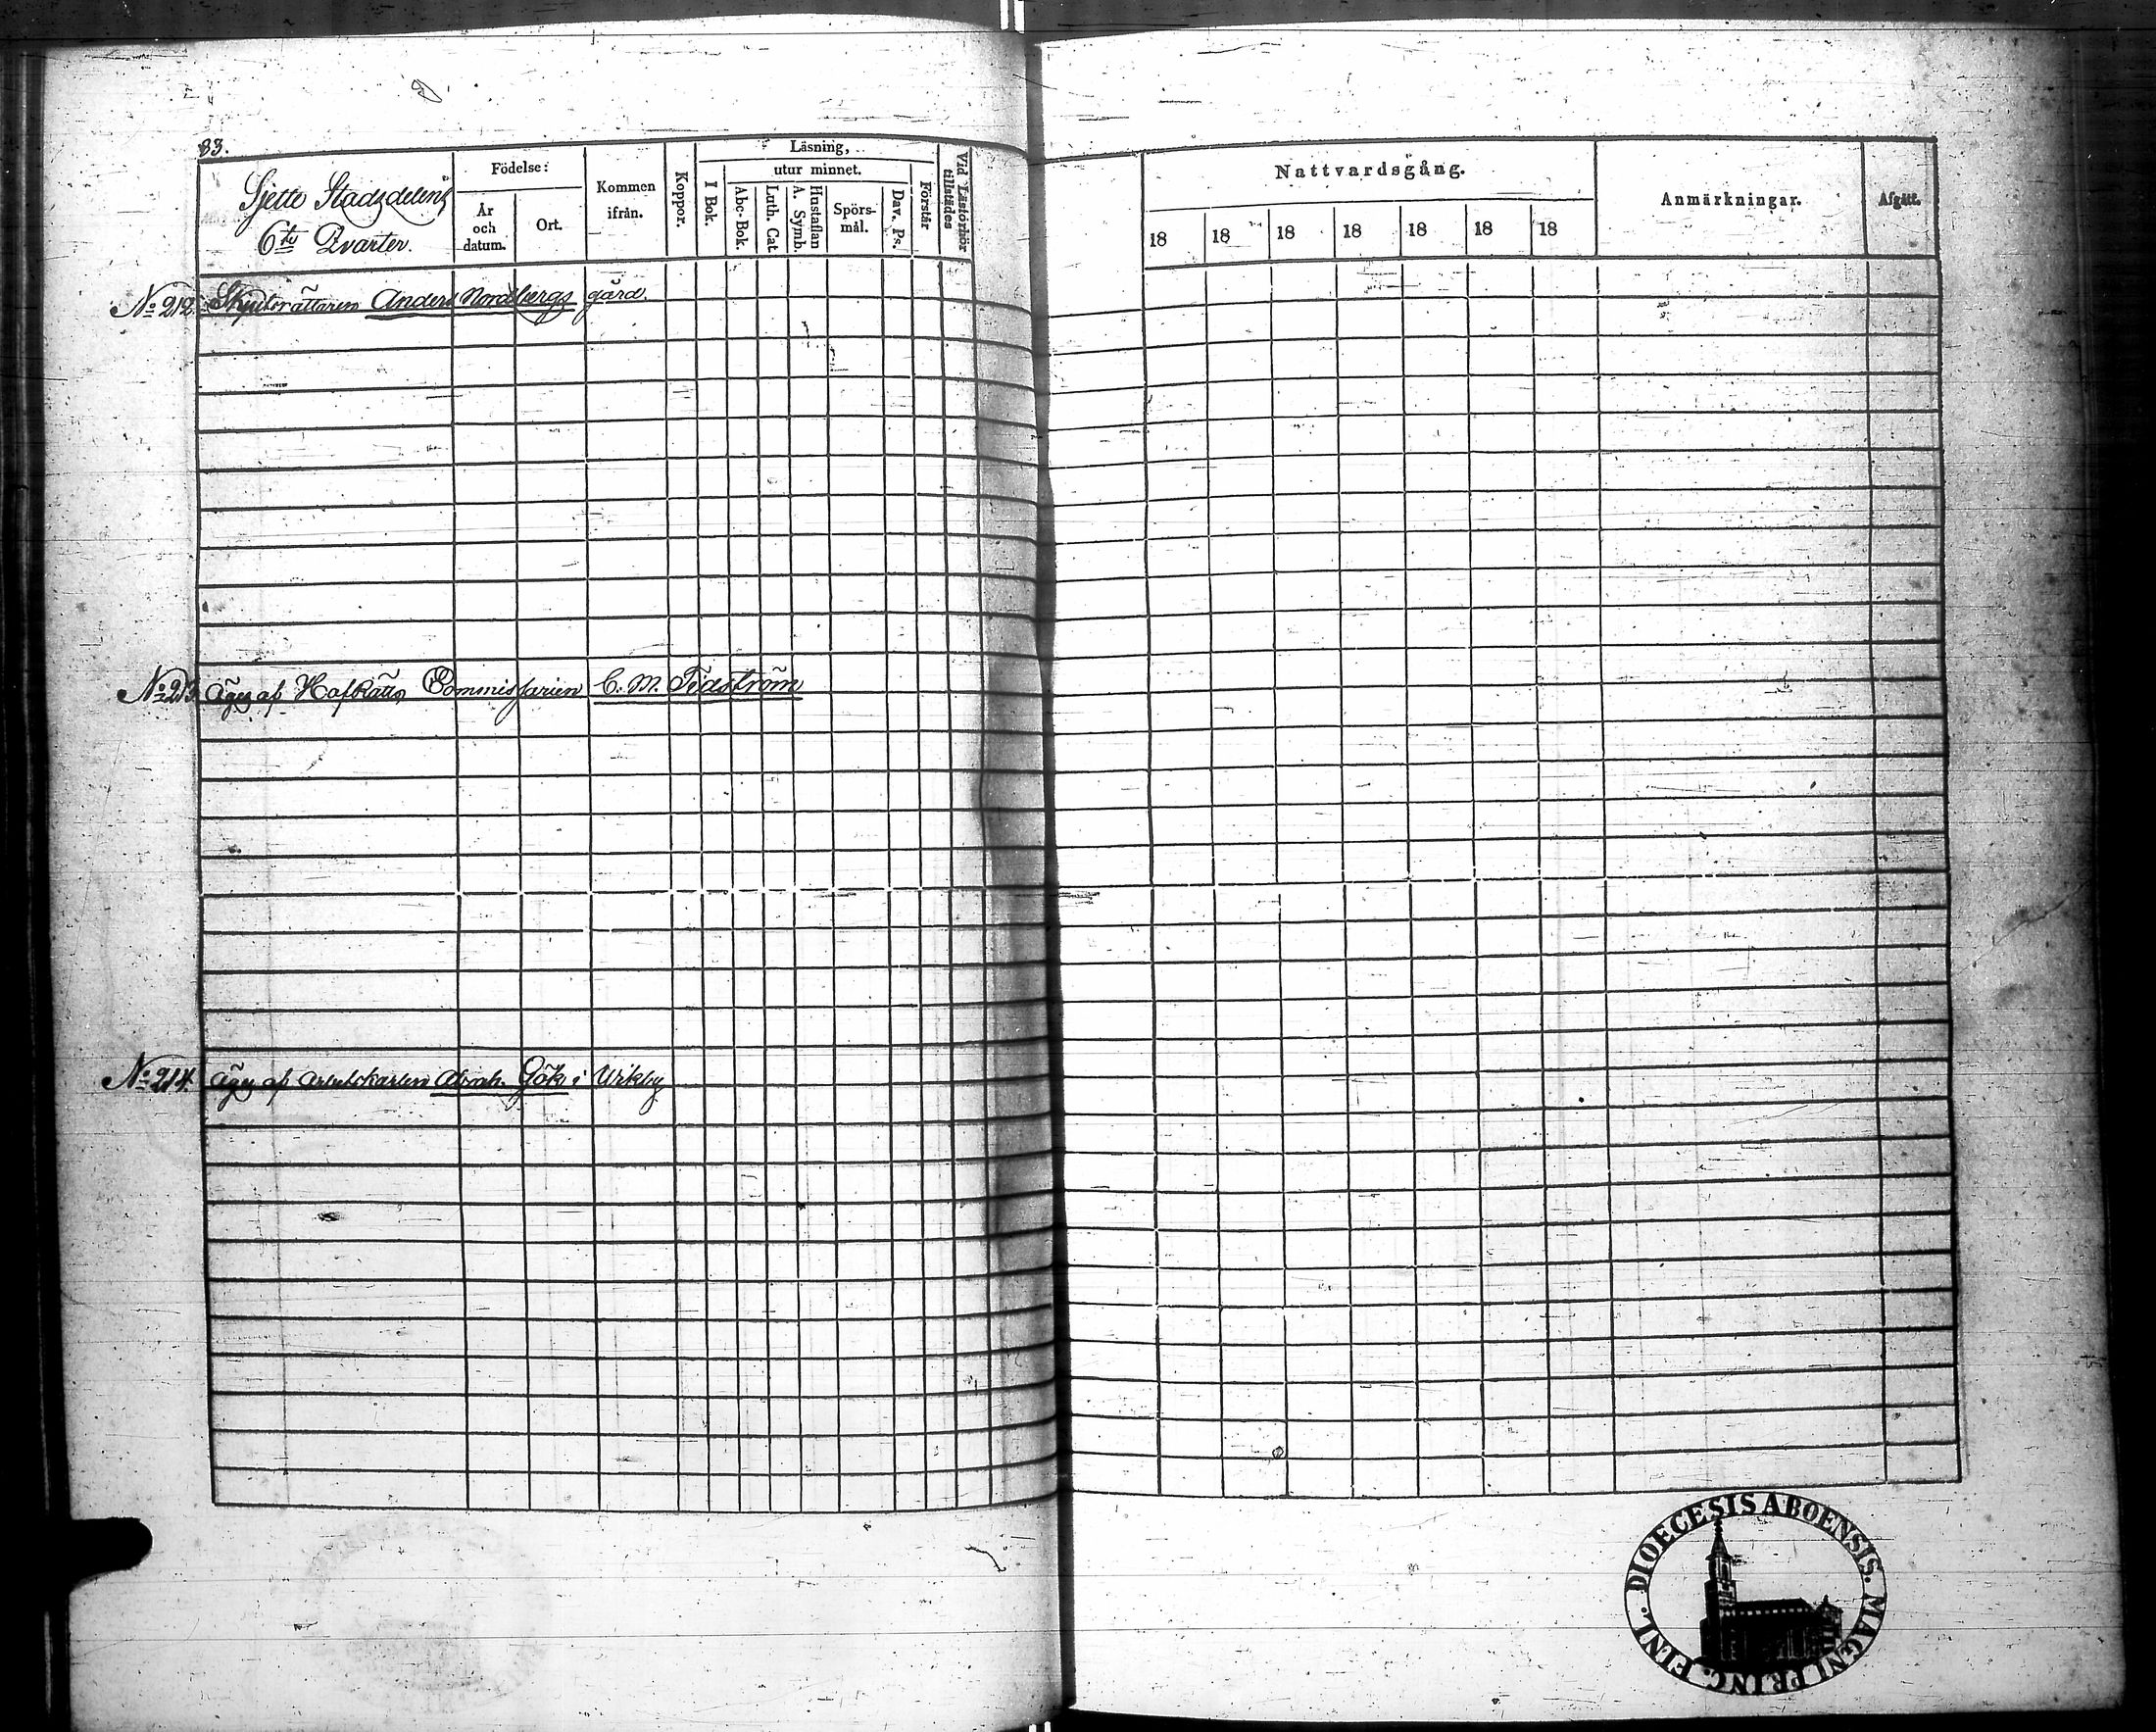 83.
Sjette Stadsdelens
6te Qvarter.
Födelse:
År och datum.
Ort.
Kommen ifrån.
Koppor.
Läsning,
I Bok.
utur minnet.
Abc-Bok.
Luth. Cat.
Hustaflan A. Symb.
Spörs-mål.
Dav. Ps.
Förstår
Vid Läsförhör tillstädes
Nattvardsgång.
18 18 18 18 18 18 18
Anmärkningar.
Afgått.
No 212. Anders Nordbergs gård.
No 213 Äges af HofRätts Commissarien C. M. Tidström
No 214. Äges af Arbetskarlen Abrah. Gök i Wikby
DIOECESIS ABOENSIS. MAGNI PRINC. FINL.